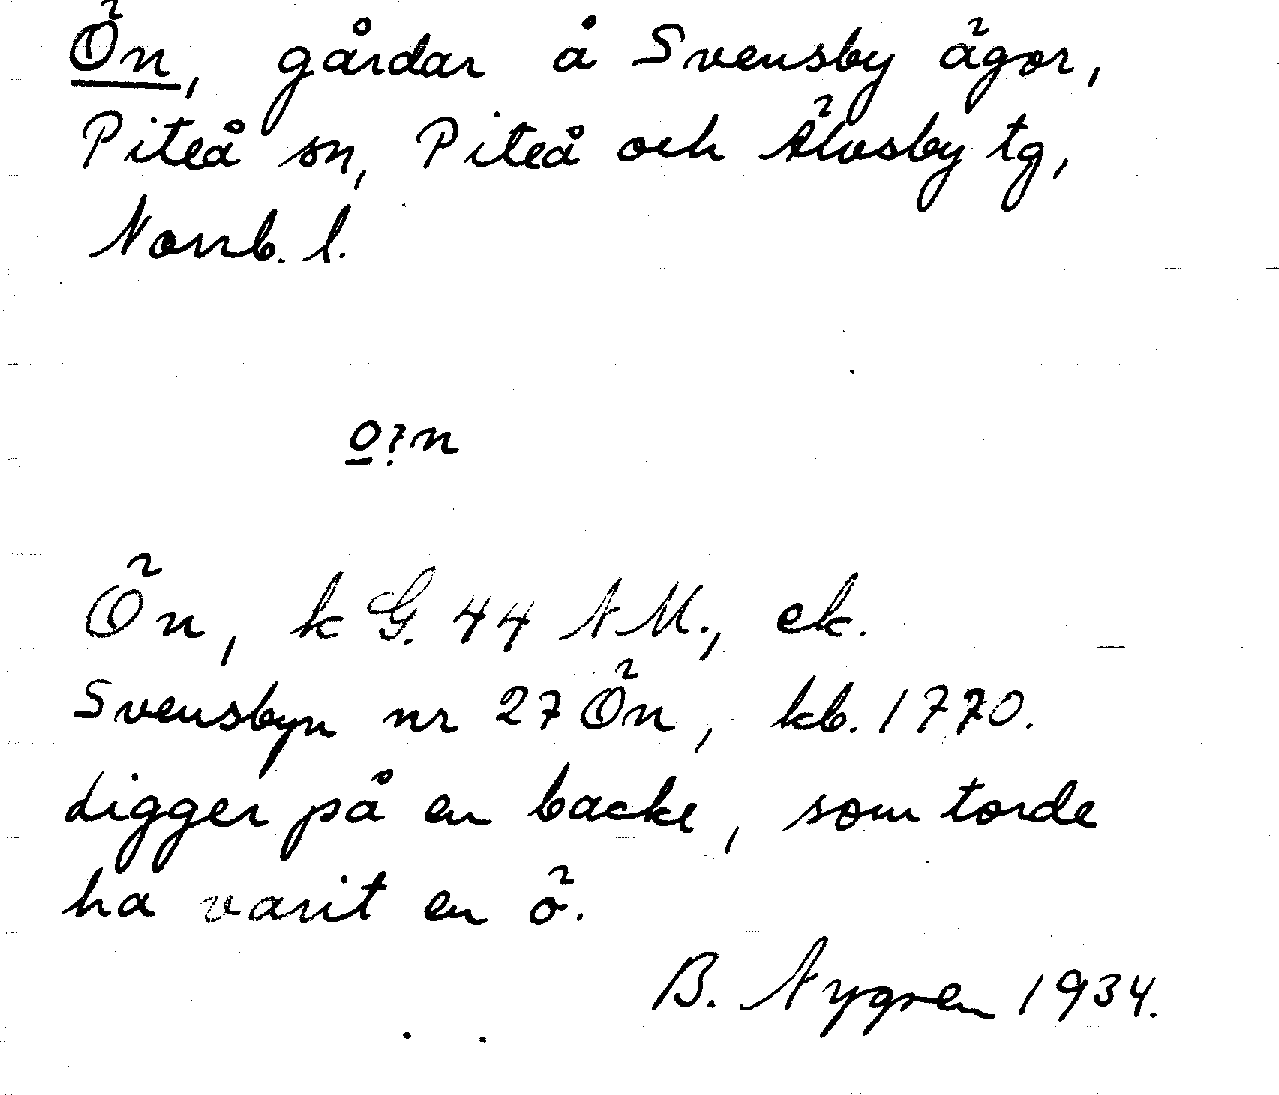 Ön, gårdar å Svensby ägor,
Piteå sn, Piteå och Älvsby tg,
Norrb. l.
o?n
Ön, k G. 44 N M., ek.
Svensbyn nr 27 Ön, kb. 1770.
Ligger på en backe, som torde
ha varit en ö.
B. Nygren 1934.